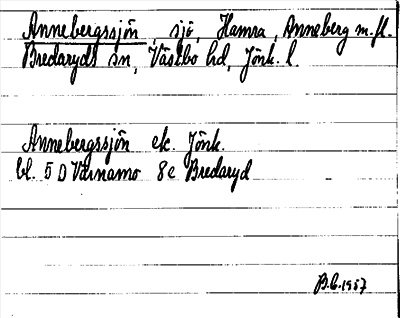 Annebergssjön, sjö, Hamra, Anneberg m.fl.
Bredaryds sn, Västbo hd, Jönk. l.
Annebergssjön ek. Jönk.
bl. 5 D Värnamo 8c Bredaryd
1957